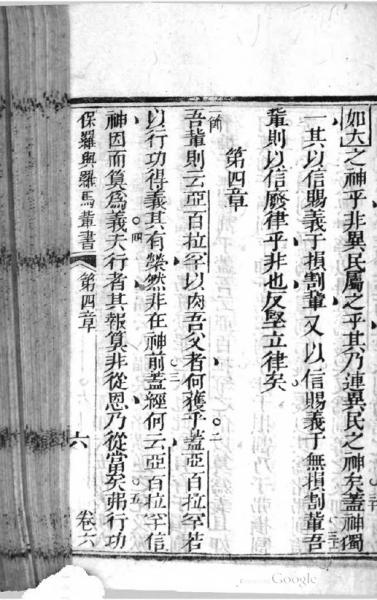 如大之神乎非異民屬之乎其乃連異民之神矣蓋神獨
一其以信賜義于損割輩又以信賜義于無損割輩吾
輩則以信廢律乎非也反堅立律矣
第四章
一節
吾輩則云亞百拉罕以肉吾父者何獲乎蓋亞百拉罕若
以行功得義其有榮然非在神前蓋經何云亞百拉罕信
神因而算為義夫行者其報算非從恩乃從當矣弗行功
保羅與羅馬輩書 第四章 六 卷六
Google